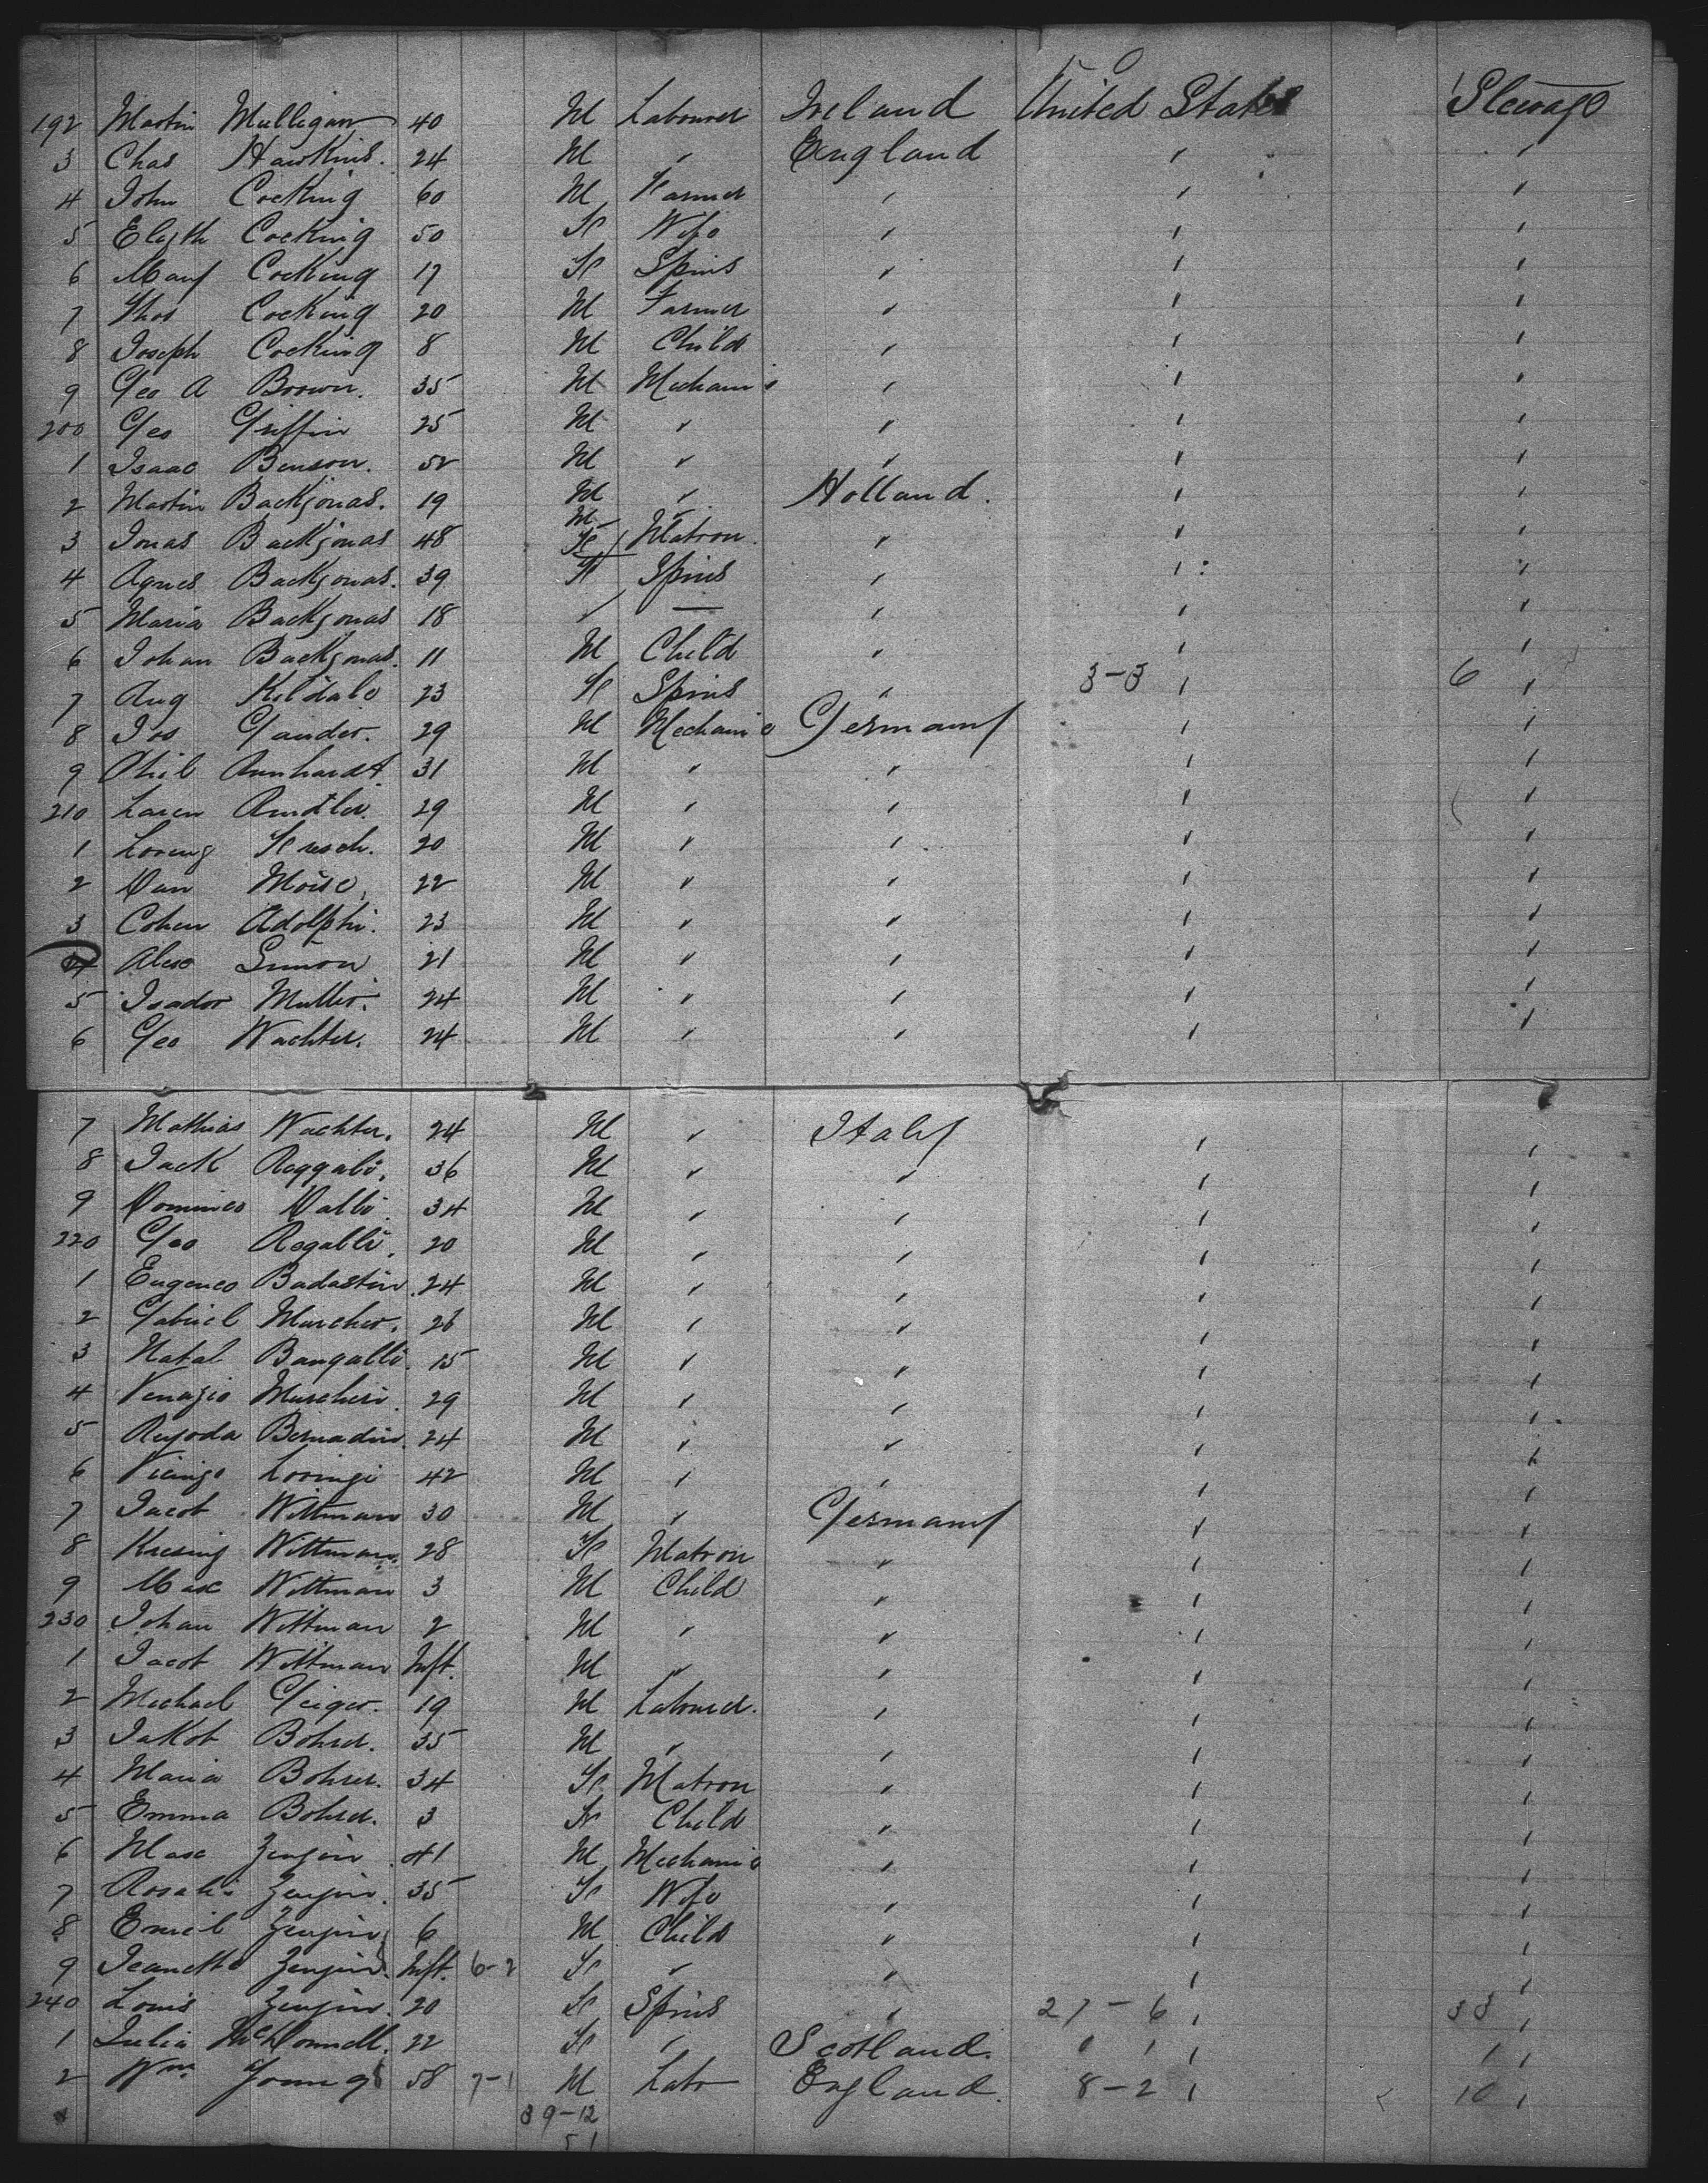 192 Martin Mulligan 40 M Labourer Ireland United States Steerage
3 Chas Hawkins. 24 M " England " "
4 John Cocking 60 M Farmer " " "
5 Elizth Cocking 50 F Wife " " "
6 Mary Cocking 17 F Spins " " "
7 Thos Cocking 20 M Farmer " " "
8 Joseph Cocking 8 M Child " " "
9 Geo A Brown. 35 M Mechanic " " "
200 Geo Griffin 25 M " " " "
1 Isaac Benson. 52 M " " " "
2 Martin Backjonas. 19 M " Holland. " "
3 Jonas Backjonas 48 M " " " "
4 Agnes Backjonas. 39 F Matron. " " "
5 Maria Backjonas 18 F Spins " " "
6 Johan Backjonas. 11 M Child " " "
7 Aug Kildale 23 F Spins " 3-3 " 6 "
8 Jos Gander. 29 M Mechanic Germany " "
9 Phil Arnhardt 31 M " " " "
210 Laren 29 M " " " "
1 Loreng Hresch. 20 M " " " "
2 Dan Moise, 22 M " " " "
3 Cohen Adolphi. 23 M " " " "
4 Alex Simon 21 M " " " "
5 Isador Muller. 24 M " " " "
6 Geo Wachter. 24 M " " " "
7 Mathias Wachter. 24 M " Italy " "
8 Jack Roggali. 36 M " " " "
9 Dominico Dalli. 34 M " " " "
220 Geo Rogalli. 20 M " " " "
1 Eugenco Badastin. 24 M " " " "
2 Gabriel Murcher. 26 M " " " "
3 Natal Bangalli. 15 M " " " "
4 Venazio Murcheri. 29 M " " " "
5 Bernadin. 24 M " " " "
6 Loringi 42 M " " " "
7 Jacob Wittman 30 M " Germany " "
8 Wittman. 28 F Matron " " "
9 Max Wittman 3 M Child " " "
230 Johan Wittman 2 M " " " "
1 Jacob Wittman Inft. M " " " "
2 Michael Geiger. 19 M Labourer. " " "
3 Jakob Bohrer. 35 M " " " "
4 Maria Bohrer. 34 F Matron " " "
5 Emma Bohrer. 3 F Child " " "
6 Max Zenjin 41 M Mechanic " " "
7 Rosali Zenjin. 35 F Wife " " "
8 Emil Zenjin 6 M Child " " "
9 Jeanette Zenjin. Inft. 6-2 F " " " "
240 Louis Zenjin. 20 F Spins " 27-6 " 33 "
1 Julia McConnell. 22 F " Scotland. " " " "
2 Wm. Young 58 7-1 M Labr England 8-2 " 10 "
39-12
51